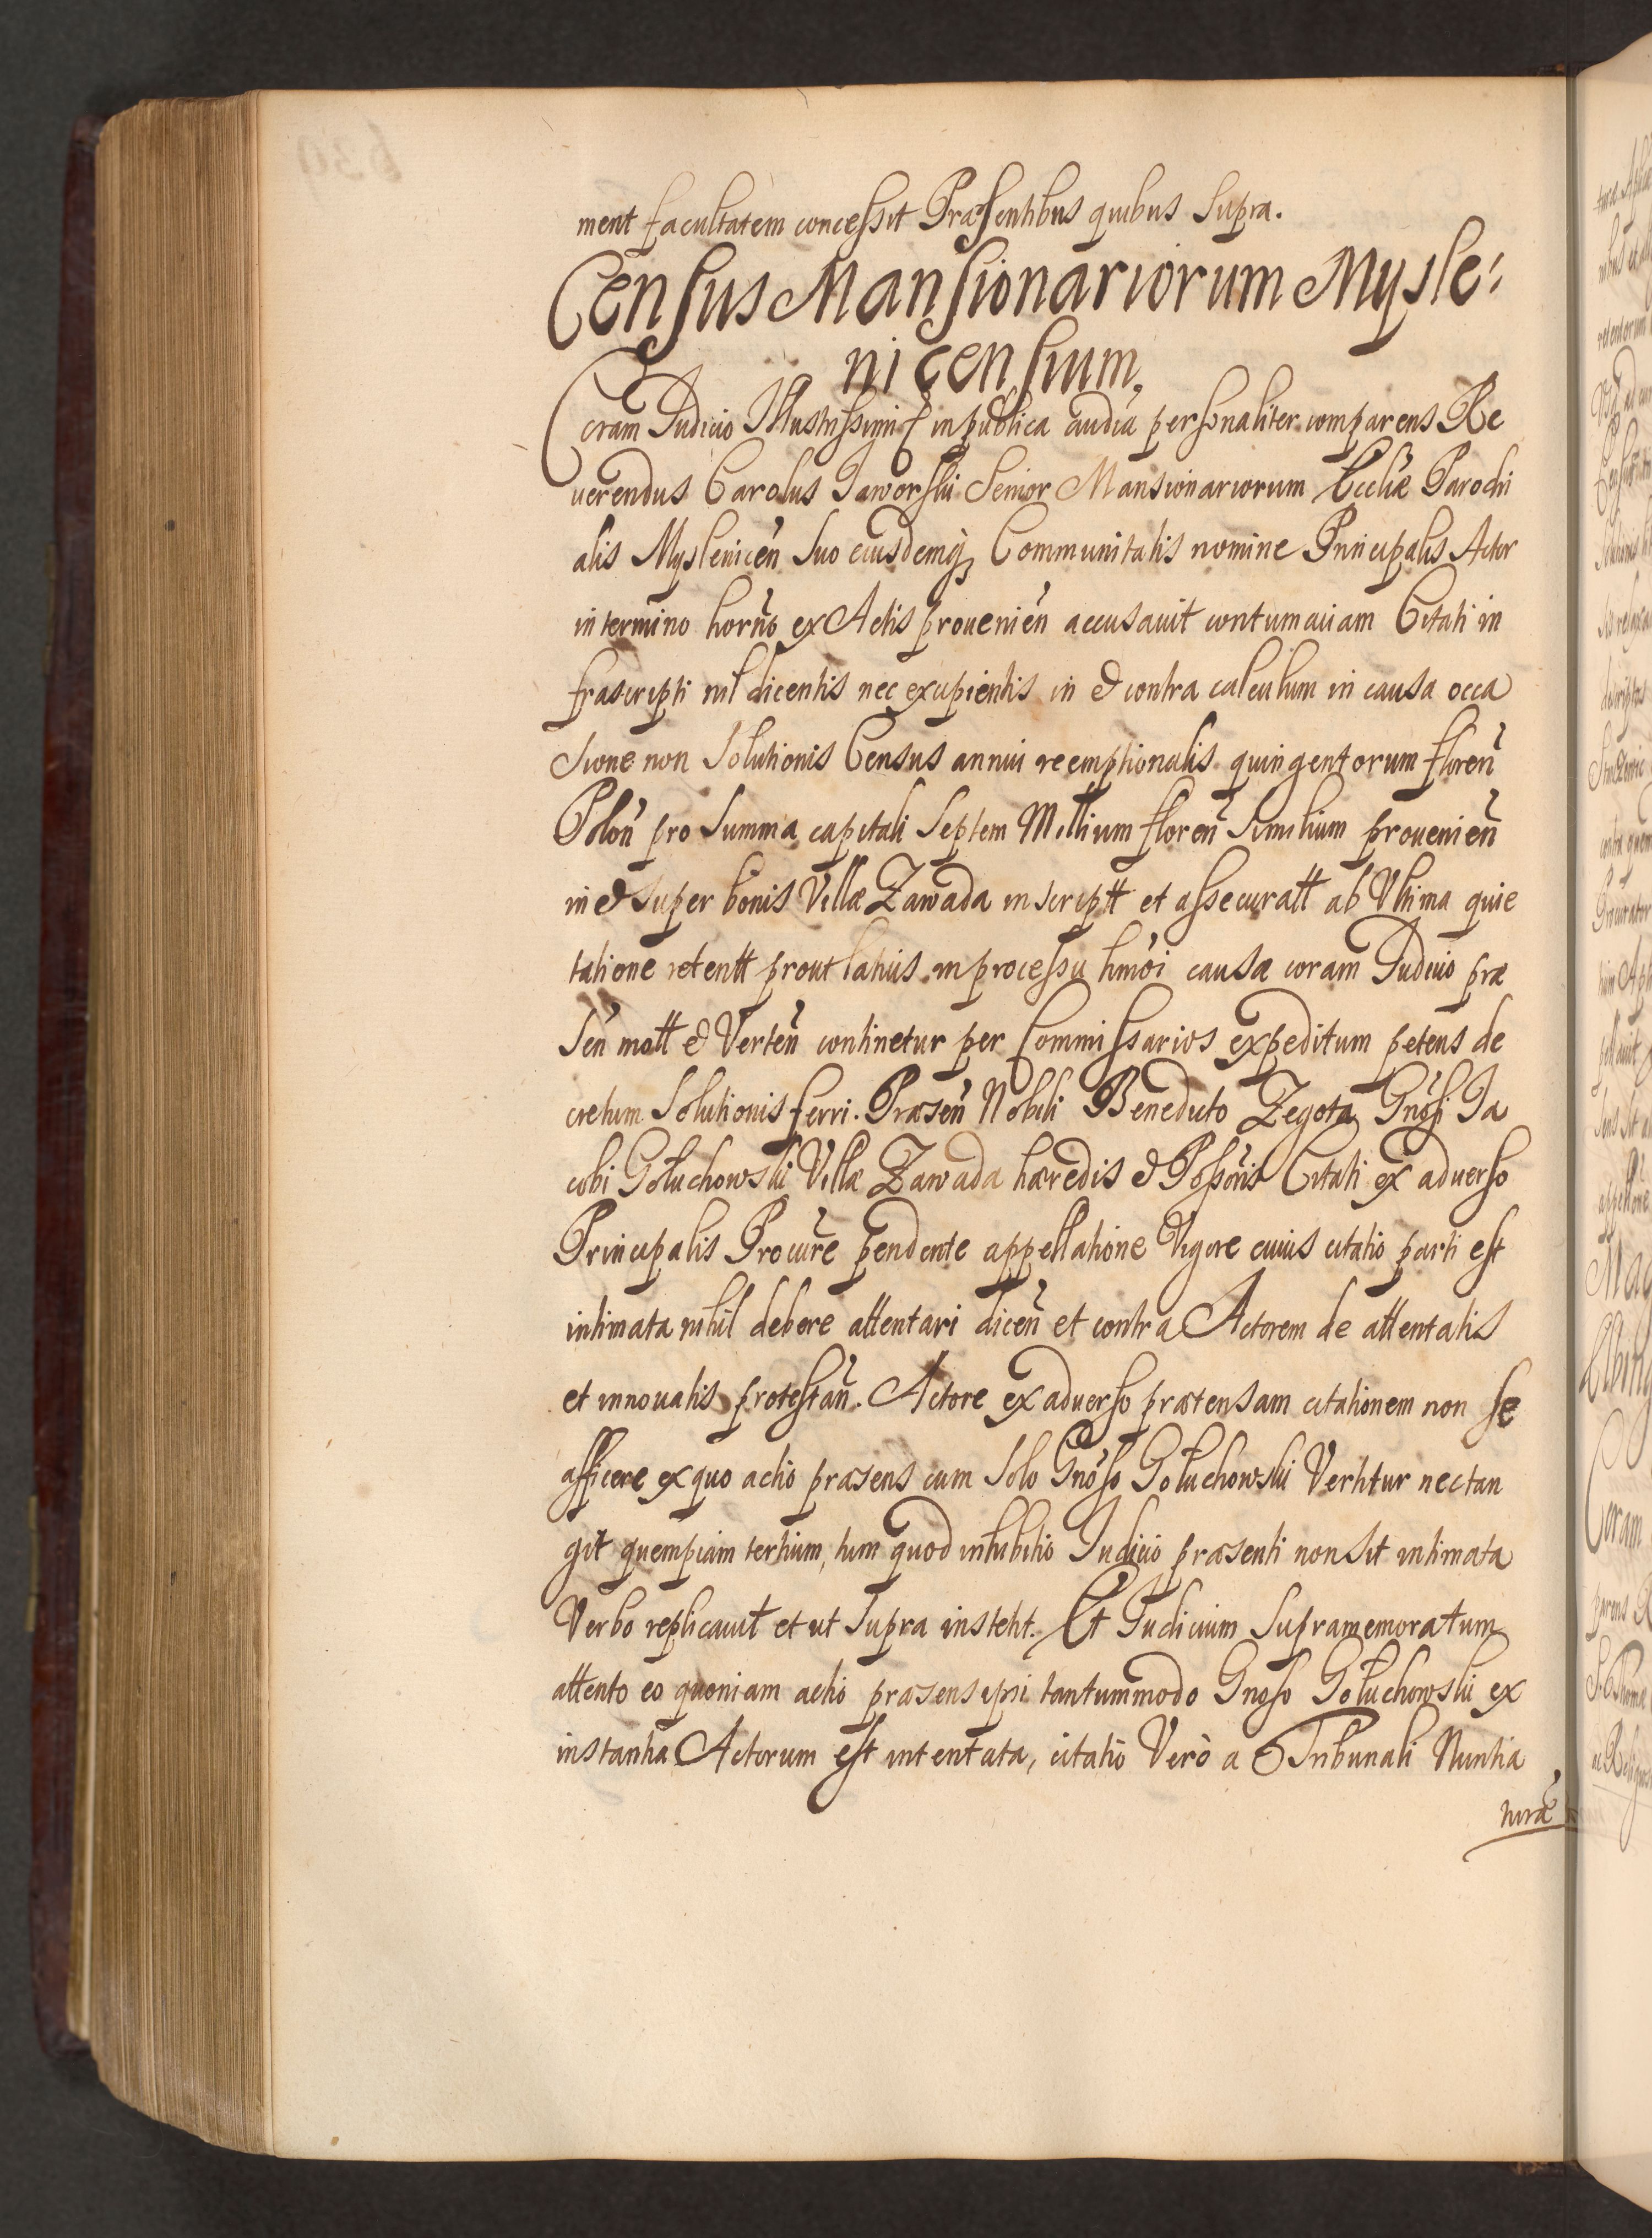 ment facultatem concessit Præsentibus quibus supra.
Census Mansionariorum Mysle:
nicensium.
Coram Judicio Illustrissimi in publica audia personaliter comparens Re
uerendus Carolus Jaworski Senior Mansionariorum Eccliæ Parochi
alis Myslenicen̄ suo eiusdemq Communitatis nomine Principalis Actor
in termino horno ex Actis prouenien̄ accusauit contumaciam Citati in
frascripti nil dicentis nec excipientis in & contra calculum in causa occa
sione non solutionis Census annui reemptionalis quingentorum floren̄
Polon̄ pro summa capitali septem Millium floren̄ similium prouenien̄
in & super bonis Villæ Zawada inscriptt et assecuratt ab Vltima quie
tatione retentt prout latius in processu hmoi causæ coram Judicio præ
sen̄ mott & Verten̄ continetur per Commissarios expeditum petens de
cretum solutionis ferri. Præsen̄ Nobili Benedicto Zegota Gnosi Ja
cobi Gołuchowski Villæ Zawada hæredis & Possoris Citati ex aduerso
Principalis Procure pendente appellatione Vigore cuius citatio parti est
intimata nihil debere attentari dicen̄ et contra Actorem de attentatis
et innouatis protestan̄. Actore ex aduerso prætensam citationem non se
afficere ex quo actio præsens cum solo Gnoso Gołuchowski Vertitur nec tan
git quempiam tertium, tum quod inhibitio Judicio præsenti non sit intimata
Verbo replicauit et ut supra instetit. Et Judicium supramemoratum
attento eo quoniam actio præsens ipsi tantummodo Gnoso Gołuchowski ex
instantia Actorum est intentata, citatio Verò a Tribunali Nuntia
turæ